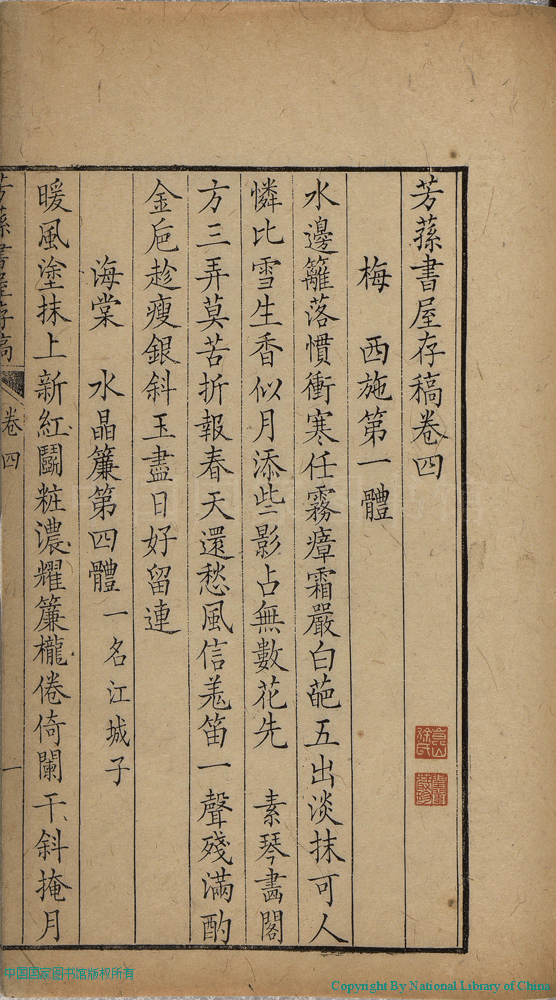 芳蓀書屋存稿卷四
梅　西施第一體
水邊籬落慣衝寒任霧瘴霜嚴白葩五出淡抹可人
憐比雪生香似月添些影占無數花先　素琴畵閣
方三弄莫苦折報春天還愁風信羗笛一聲殘滿酌
金巵趁瘦銀斜玉盡日好留連
海棠　水晶簾第四體 一名江城子
暖風塗抹上新紅鬭粧濃耀簾櫳倦倚闌干斜掩月
芳蓀書屋存稿
卷四
一
中国国家图书馆版权所有
Copyright By National Library of China